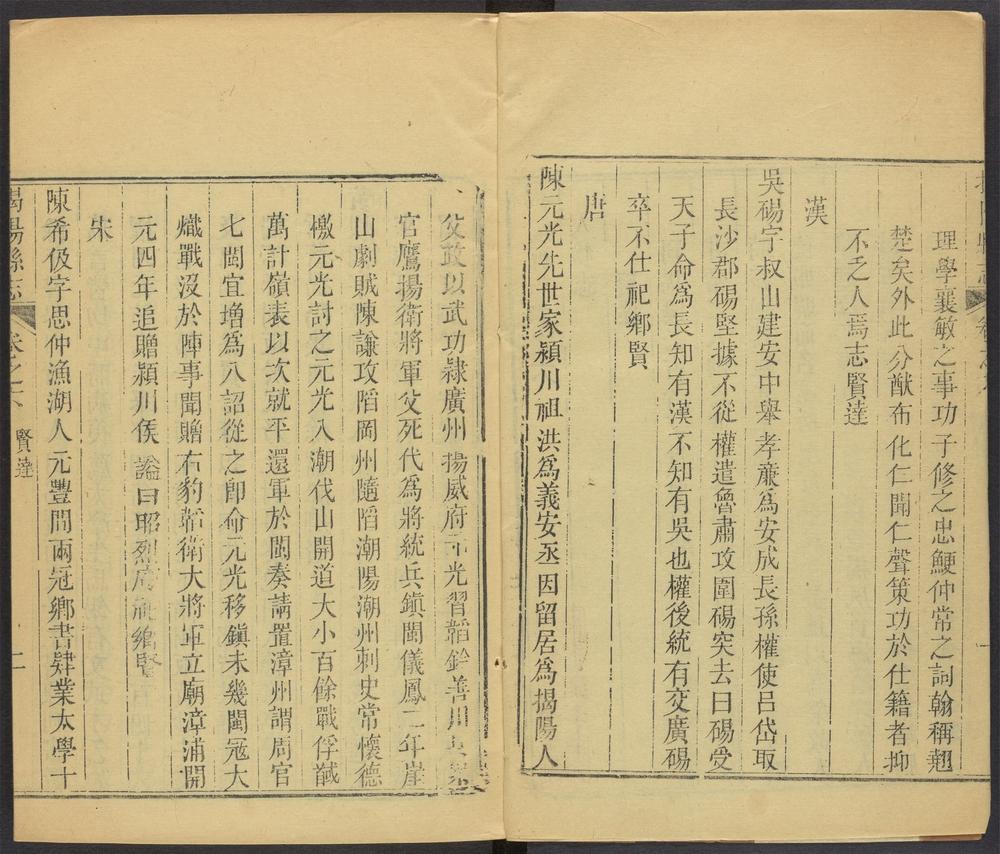 理學襄敏之事功子修之忠鯁仲常之詞翰稱翹
楚矣外此分猷布化仁聞仁聲策功於仕籍者抑
不乏人焉志賢達
漢
吳碭字叔山建安中舉孝亷為安成長孫權使吕岱取
長沙郡碭堅據不從權遣魯肅攻圍碭突去曰碭受
天子命為長知有漢不知有吳也權後統有交廣碭
卒不仕祀鄉賢
唐
陳元光先世家潁川祖洪為義安丞因留居為揭陽人
父政以武功隷廣州揚威府元光習韜鈐善用兵
官鷹揚衛將軍父死代為將統兵鎮閩儀鳳二年崖
山劇賊陳謙攻陷岡州隨陷潮陽潮州刺史常懷德
檄元光討之元光入潮伐山開道大小百餘戰俘馘
萬計嶺表以次就平還軍於閩奏請置漳州謂周官
七閩宜增為八詔從之即命元光移鎮未幾閩寇大
熾戰没於陣事聞贈右豹韜衛大將軍立廟漳浦開
元四年追贈潁川侯謚曰昭烈祀鄉賢
宋
陳希伋字思仲漁湖人元豐間兩冠鄉書肄業太學十
揭陽縣志
卷之六
賢達
二